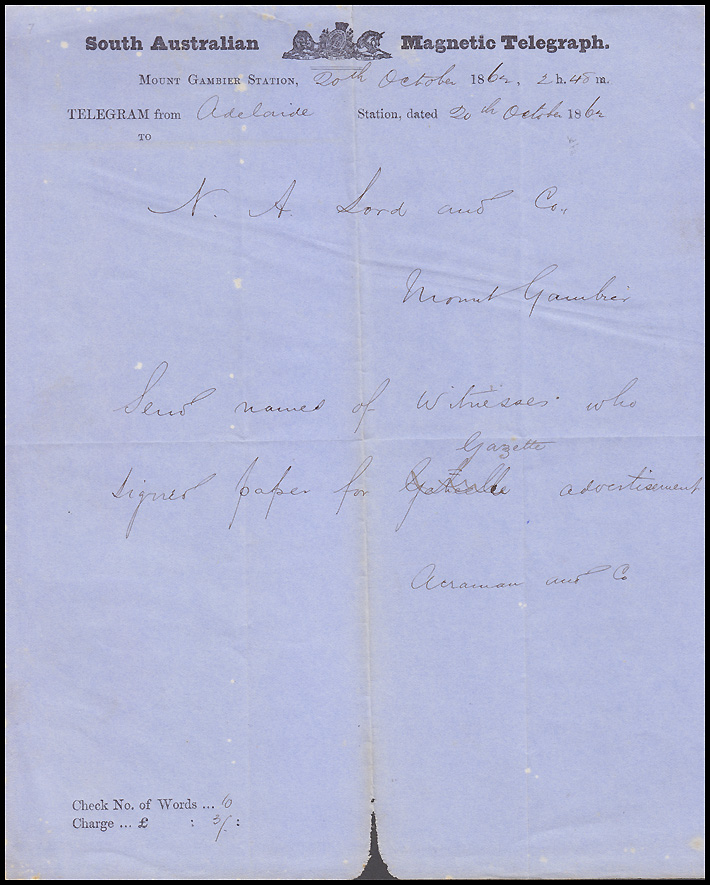 South Australian Magnetic Telegraph.
MOUNT GAMBIER STATION, 20th October 1862, 2 h. 40 m.
TELEGRAM from Adelaide Station, dated 20th October 1862
TO
N. A. Lord and Co.,
Mount Gambier
Send names of Witnesses who
Gazette
signed paper for advertisement
Acraman and Co
Check No. of Words ... 10
Charge ... £ : 3/ :